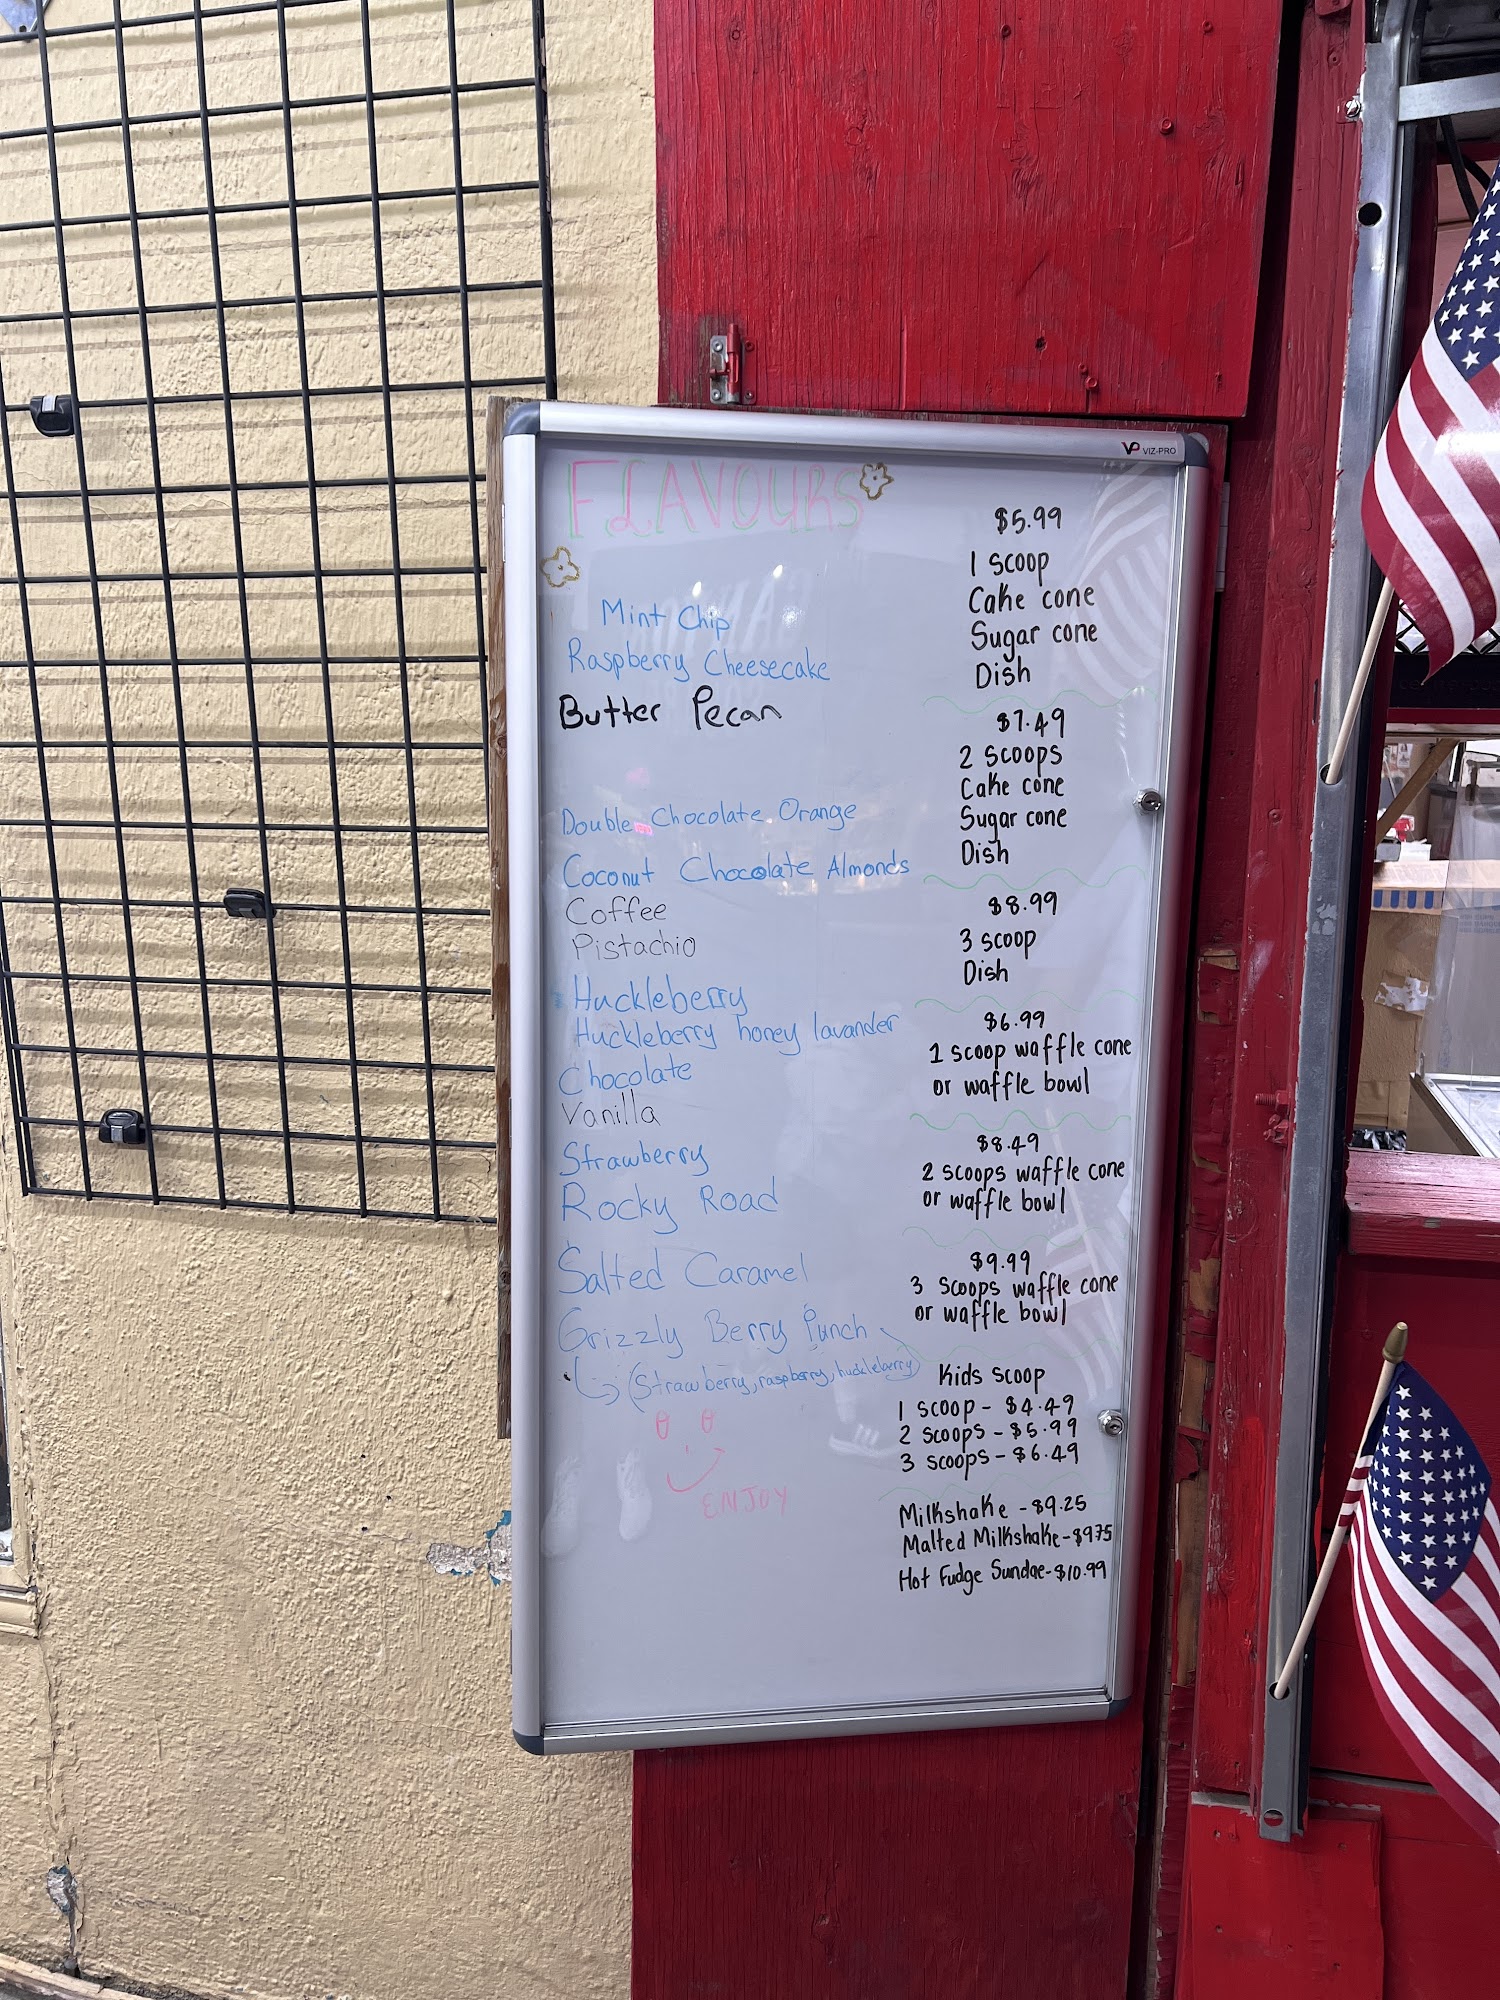 VP VIZ-PRO
FLAVOURS
Mint Chip
Raspberry Cheesecake
Butter Pecan
Double Chocolate Orange
Coconut Chocolate Almonds
Coffee
Pistachio
Huckleberry
Huckleberry honey lavander
Chocolate
Vanilla
Strawberry
Rocky Road
Salted Caramel
Grizzly Berry Punch
(Strawberry, raspberry, huckleberry)
ENJOY
$5.99
1 scoop
Cake cone
Sugar cone
Dish
$7.49
2 scoops
Cake cone
Sugar cone
Dish
$8.99
3 scoop
Dish
$6.99
1 scoop waffle cone
or waffle bowl
$8.49
2 scoops waffle cone
or waffle bowl
$9.99
3 scoops waffle cone
or waffle bowl
Kids scoop
1 scoop - $4.49
2 scoops - $5.99
3 scoops - $6.49
Milkshake - $9.25
Malted Milkshake - $975
Hot Fudge Sundae - $10.99